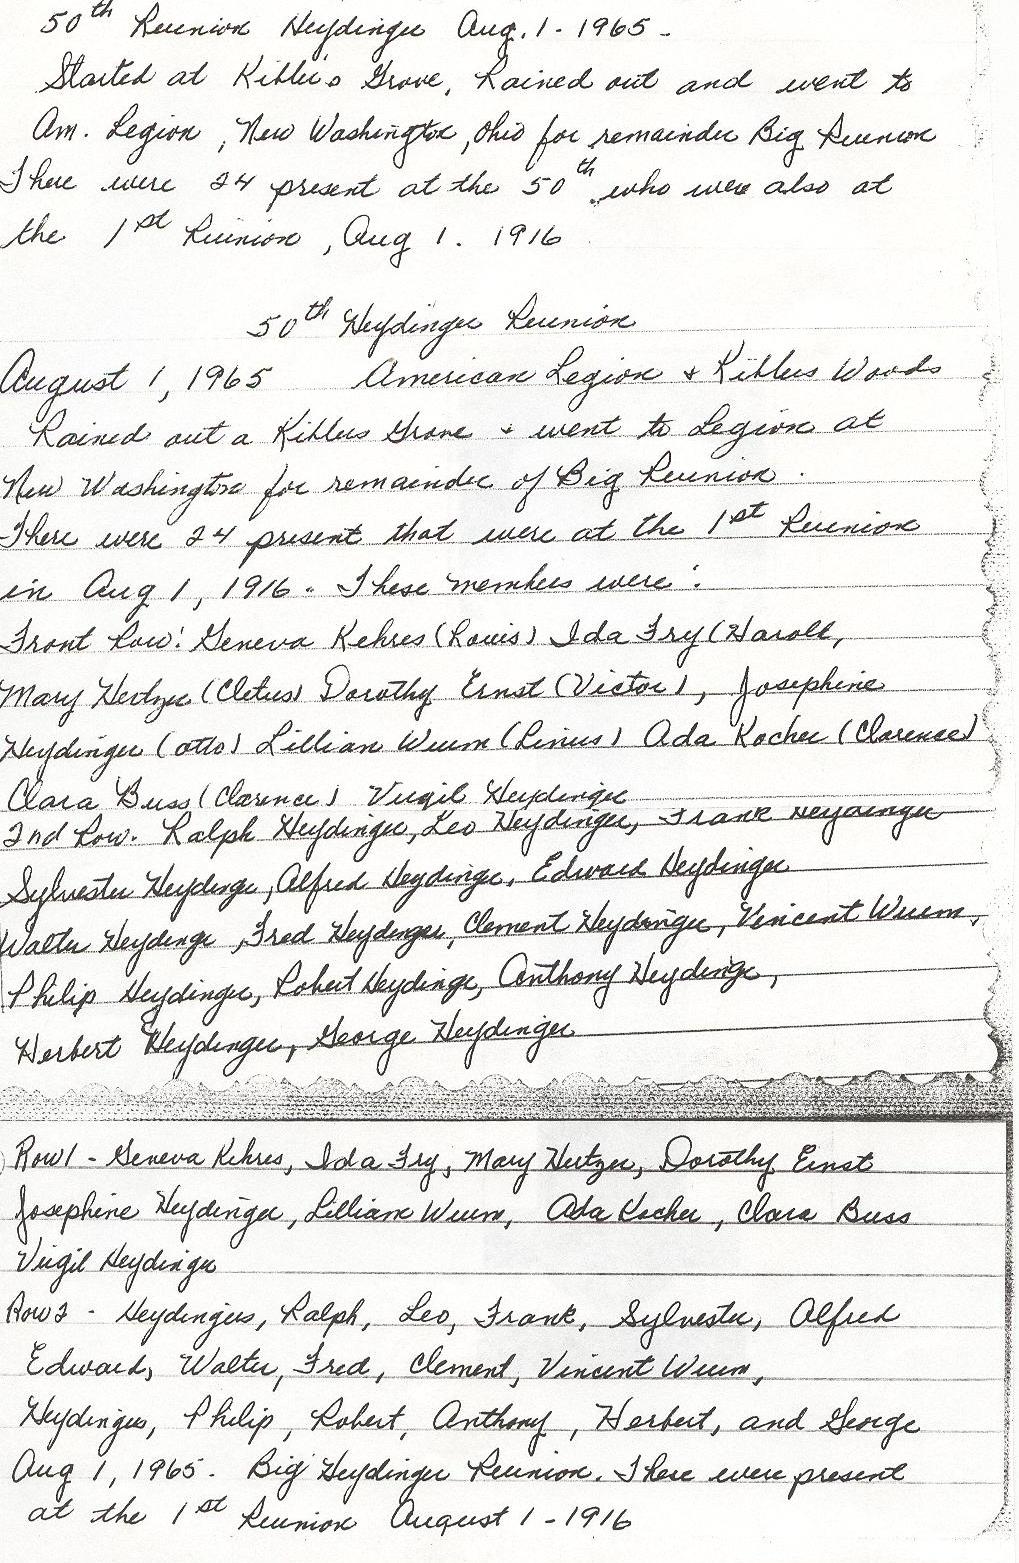 50th Reunion Heydinger Aug. 1 - 1965 -
Started at Kibler's Grove. Rained out and went to
Am. Legion, New Washington, Ohio for remainder Big Reunion
There were 24 present at the 50th who were also at
the 1st Reunion, Aug 1. 1916
50th Heydinger Reunion
August 1, 1965 American Legion & Kiblers Woods
Rained out a Kiblers Grove & went to Legion at
New Washington for remainder of Big Reunion.
There were 24 present that were at the 1st Reunion
in Aug 1, 1916. These members were:
Front Row: Geneva Kehres (Louis) Ida Fry (Harold,
Mary Hertzer (Cletus) Dorothy Ernst (Victor), Josephine
Heydinger (Otto) Lillian Wurm (Linus) Ada Kocher (Clarence)
Clara Buss (Clarence) Virgil Heydinger
2nd Row. Ralph Heydinger, Leo Heydinger, Frank Heydinger
Sylvester Heydinger, Alfred Heydinger, Edward Heydinger
Walter Heydinger, Fred Heydinger, Clement Heydinger, Vincent Wurm,
Philip Heydinger, Robert Heydinger, Anthony Heydinger,
Herbert Heydinger, George Heydinger
Row 1 - Geneva Kehres, Ida Fry, Mary Hertzer, Dorothy Ernst
Josephine Heydinger, Lillian Wurm, Ada Kocher, Clara Buss
Virgil Heydinger
Row 2 - Heydingers, Ralph, Leo, Frank, Sylvester, Alfred
Edward, Walter, Fred, Clement, Vincent Wurm,
Heydingers, Philip, Robert, Anthony, Herbert, and George
Aug 1, 1965. Big Heydinger Reunion. There were present
at the 1st Reunion August 1 - 1916